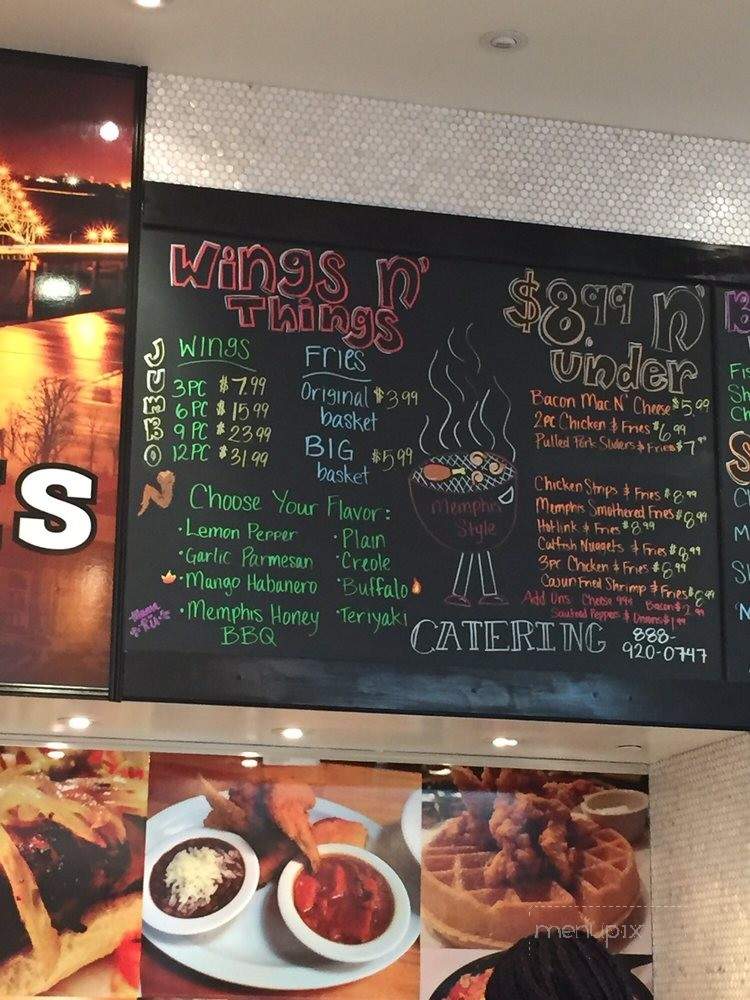 Wings n'
Things
JUMBO
Wings
3PC $7.99
6 PC $15.99
9 PC $23.99
12PC $31.99
Fries
Original $3.99
basket
BIG $5.99
basket
Choose Your Flavor:
• Lemon Pepper
• Garlic Parmesan
• Mango Habanero
• Memphis Honey
BBQ
• Plain
• Creole
• Buffalo
• Teriyaki
Memphis
Style
$8.99 n'
under
Bacon Mac N' Cheese $5.99
2pc Chicken & Fries $6.99
Pulled Pork Sliders & Fries $7.99
Chicken Strips & Fries $8.99
Memphis Smothered Fries $8.99
Hotlink & Fries $8.99
Catfish Nuggets & Fries $8.99
3pc Chicken & Fries $8.99
Cajun Fried Shrimp & Fries $8.99
Add Ons: Cheese 99¢ Bacon $2.99
Sauteed Peppers & Onions $1.99
CATERING 888-
920-0747
S
menupix